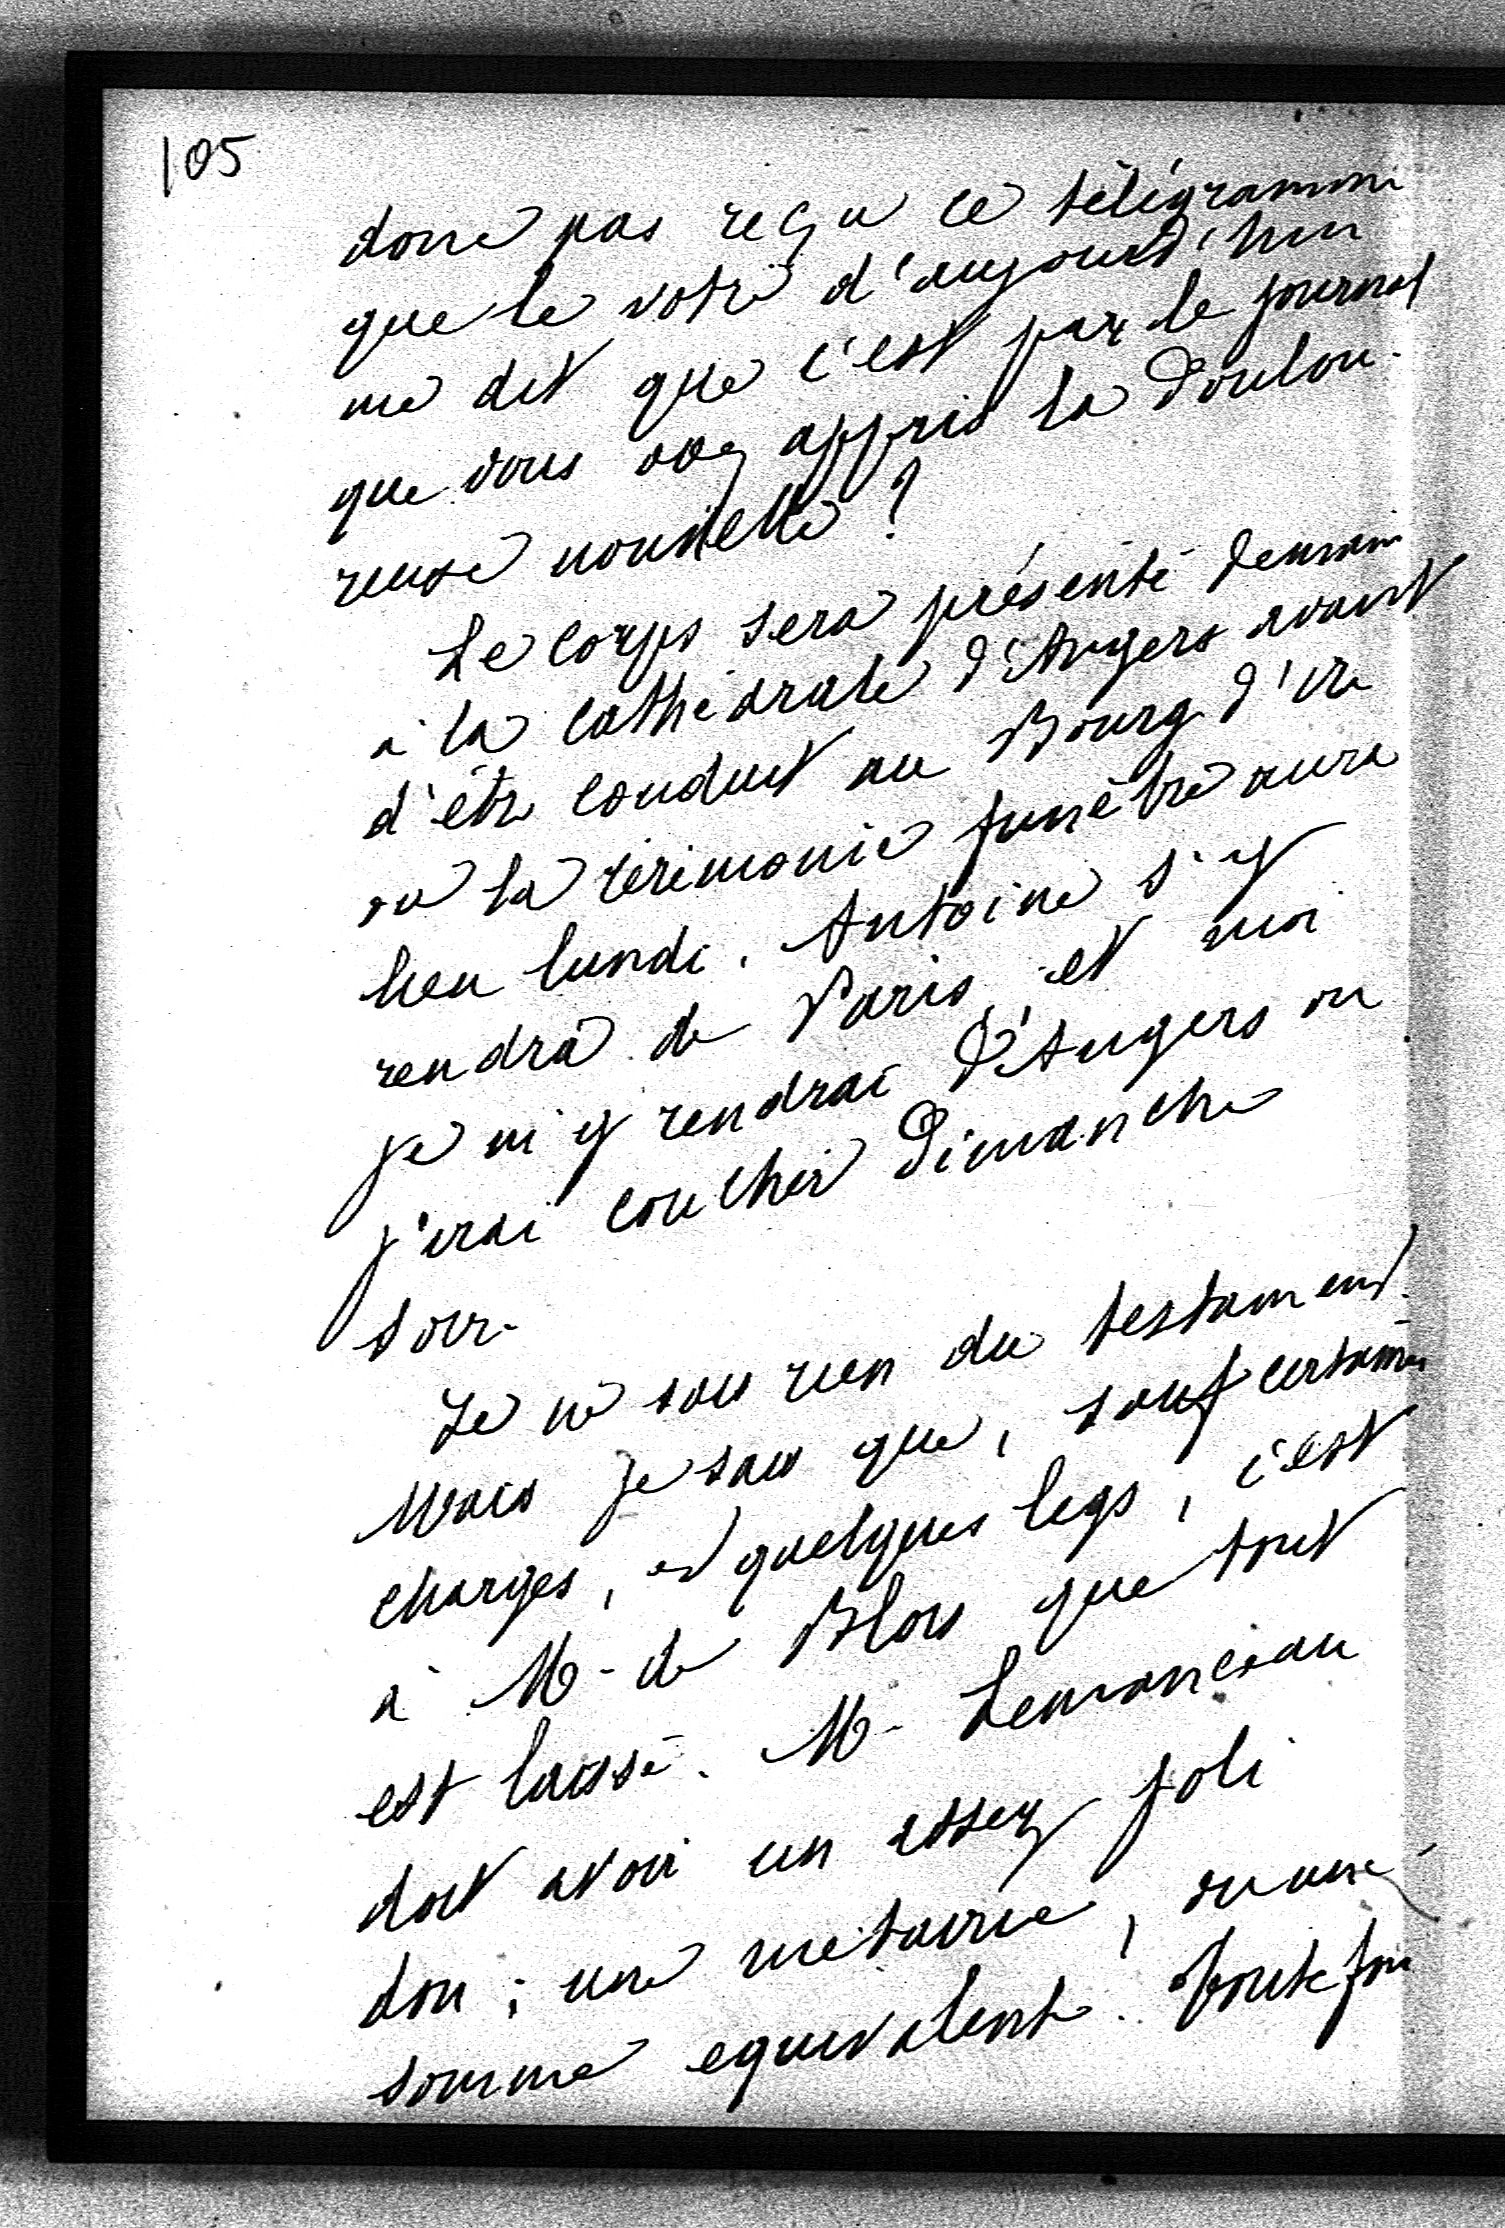 105
donc pas reçu ce télégramme
que le votre d'aujourd'hui
me dit que c'est par le journal
que vous avez appris la doulou-
reuse nouvelle ?
Le corps sera présenté demain
à la cathédrale d'Angers avant
d'être conduit au Bourg d'Iré
où la cérémonie funèbre aura
lieu lundi. Antoine s'y
rendra de Paris, et moi
je m'y rendrai d'Angers ou
j'irai coucher Dimanche
soir.
Je ne sais rien du testament.
Mais je sais que, sauf certaines
charges, et quelques legs, c'est
à M. de Blois que tout
est laissé. M. Lemanceau
doit avoir un assez joli
don ; une métairie, ou une
somme equivalente. Toutefois